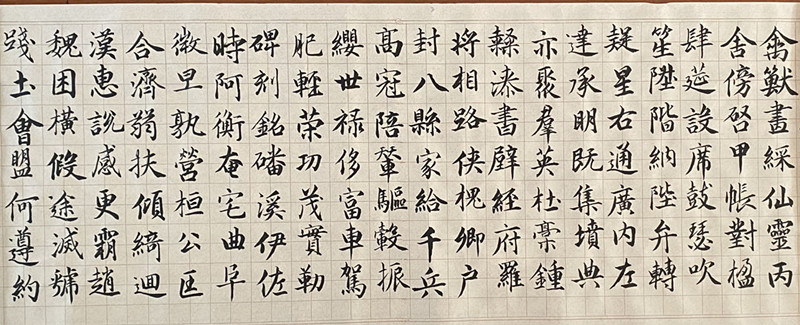 禽獸畫綵仙靈丙
舍傍啓甲帳對楹
肆筵設席鼓瑟吹
笙陞階納陛弁轉
疑星右通廣内左
達承明既集墳典
亦聚羣英杜稾鍾
隸漆書壁經府羅
將相路俠槐卿户
封八縣家給千兵
高冠陪輦驅轂振
纓世禄侈富車駕
肥輕策功茂實勒
碑刻銘磻溪伊佐
時阿衡奄宅曲阜
微旦孰營桓公匡
合濟弱扶傾綺迴
漢惠説感更霸趙
魏困横假途滅虢
踐土會盟何遵約